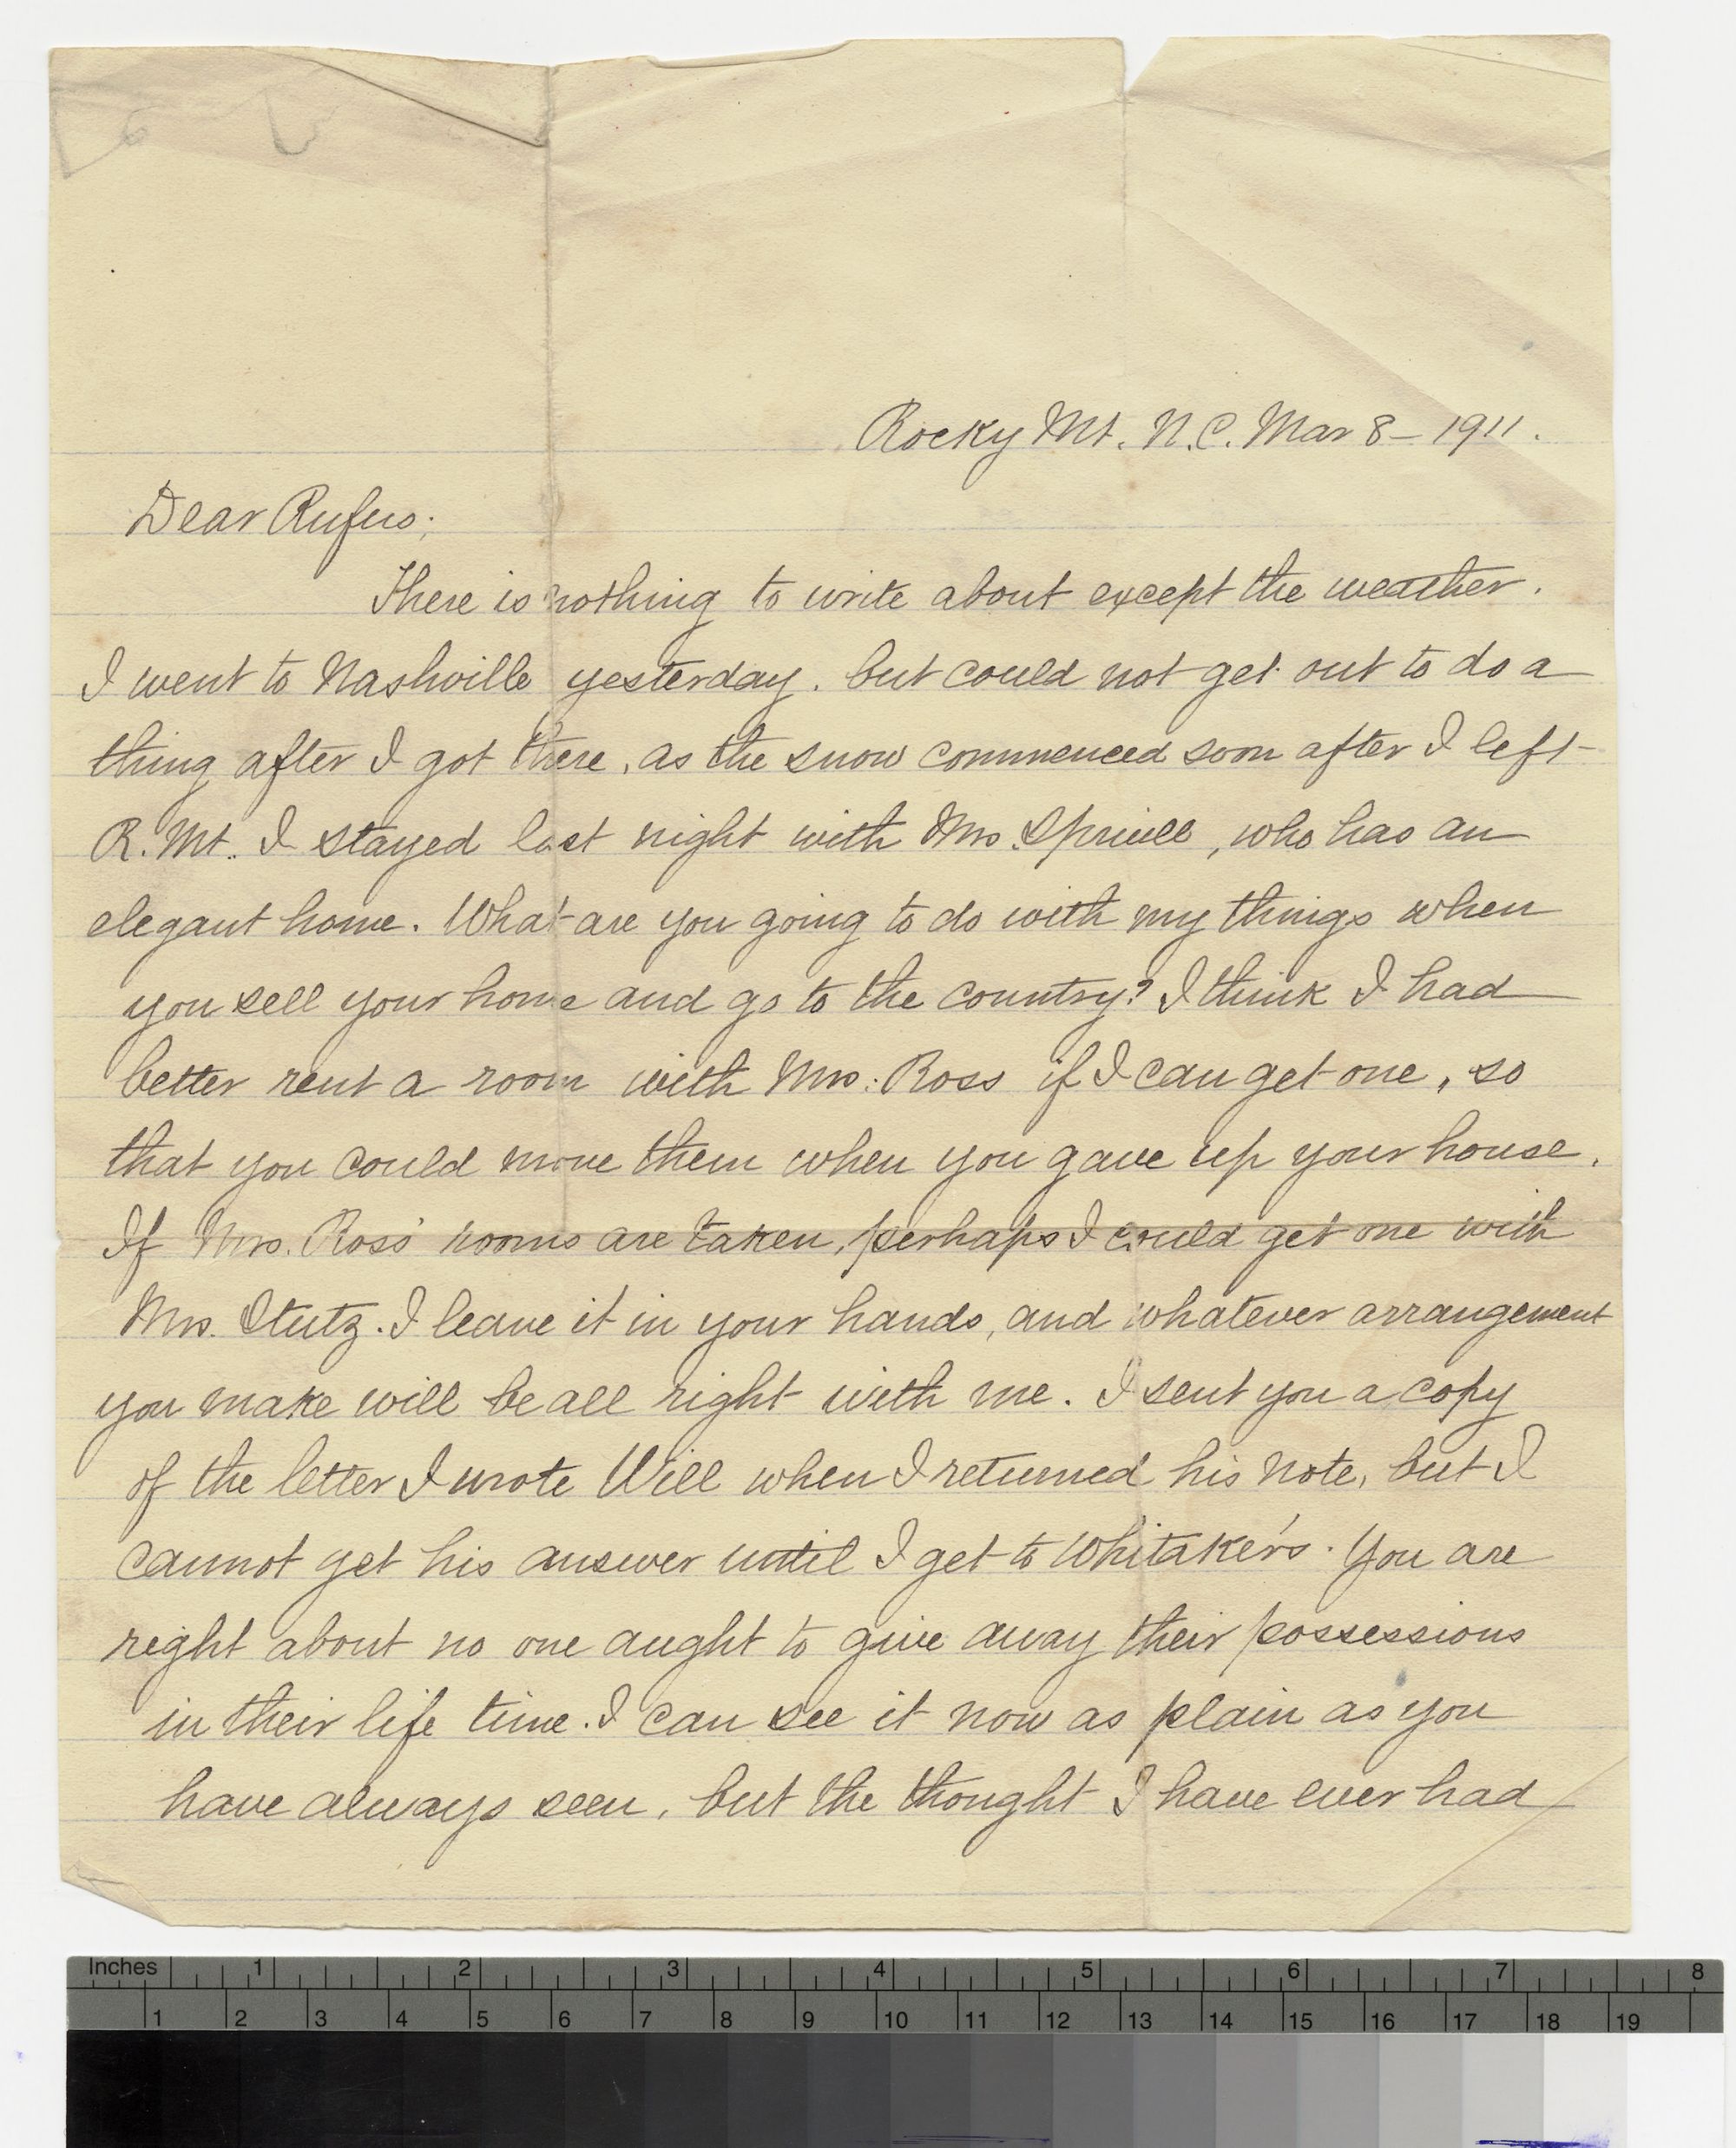 Rocky Mt. N.C. Mar 8 - 1911.
Dear Rufus;
There is nothing to write about except the weather.
I went to Nashville yesterday. but could not get out to do a
thing after I got there, as the snow commenced soon after I left
R. Mt. I stayed last night with Mrs. Spruill, who has an
elegant home. What are you going to do with my things when
you sell your home and go to the country? I think I had
better rent a room with Mrs. Ross if I can get one, so
that you could move them when you gave up your house.
If Mrs. Ross' rooms are taken, perhaps I could get one with
Mrs. Stutz. I leave it in your hands, and whatever arrangement
you make will be all right with me. I sent you a copy
of the letter I wrote Will when I returned his note, but I
cannot get his answer until I get to Whitaker's. You are
right about no one aught to give away their possessions
in their life time. I can see it now as plain as you
have always seen, but the thought I have ever had
Inches 1 2 3 4 5 6 7 8
1 2 3 4 5 6 7 8 9 10 11 12 13 14 15 16 17 18 19